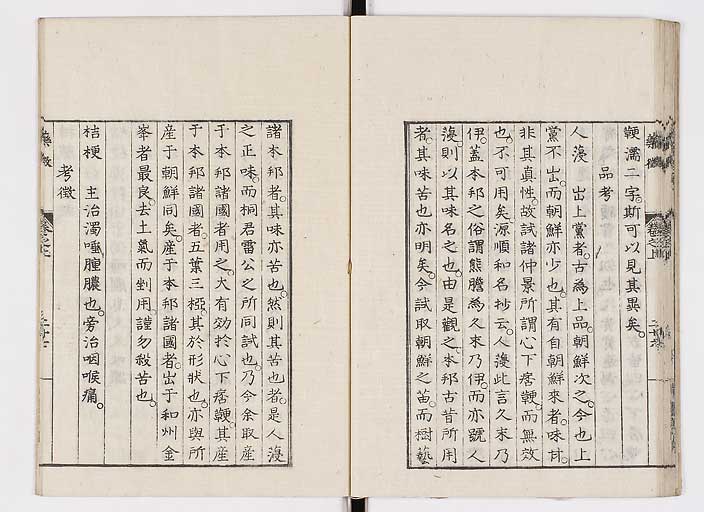 鞕濡二字。斯可以見其異矣。
品考
人蓡　出上黨者。古爲上品。朝鮮次之。今也上
黨不出。而朝鮮亦少也。其有自朝鮮來者。味甘。
非其眞性。故試諸仲景所謂心下痞鞕。而無效
也。不可用矣。源順和名抄云。人蓡此言久末乃
伊。蓋本邦之俗謂熊膽爲久末乃伊。而亦號人
蓡。則以其味名之也。由是觀之。本邦古昔所用
者。其味苦也亦明矣。今試取朝鮮之苗。而樹藝
諸本邦者。其味亦苦也。然則其苦也者。是人蓡
之正味。而桐君雷公之所同試也。乃今余取產
于本邦諸國者用之。大有効於心下痞鞕。其產
于本邦諸國者。五葉三椏。其於形狀也。亦與所
產于朝鮮同矣。產于本邦諸國者。出于和州金
峯者最良。去土氣而剉用。謹勿殺苦也。
桔梗　主治濁唾腫膿也。旁治咽喉痛。
考徵
藥徵
卷之上